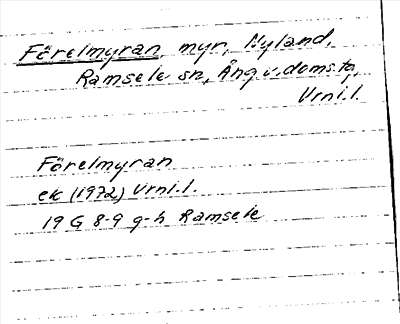 Förelmyran, myr, Nyland,
Ramsele sn, Ång v. doms.tg,
Urni.l.
Förelmyran
ek (1972) Urni.l.
19 G 8-9 g-h Ramsele